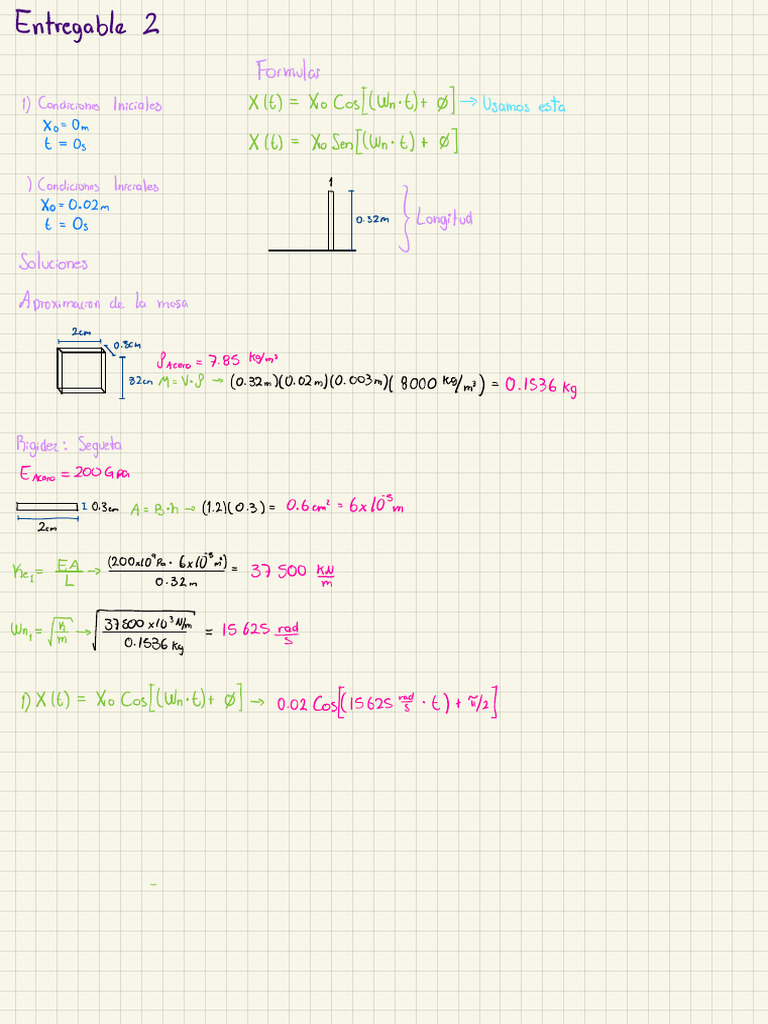 Entregable 2
Formulas
1) Condiciones Iniciales
X₀ = 0m
t = 0s
X(t) = X₀ Cos[(Wn·t) + Ø] → Usamos esta
X(t) = X₀ Sen[(Wn·t) + Ø]
) Condiciones Iniciales
X₀ = 0.02m
t = 0s
1
0.32m
Longitud
Soluciones
Aproximacion de la masa
2cm
0.3cm
32cm
ρ Acero = 7.85 kg/m³
M = V·ρ → (0.32m)(0.02m)(0.003m)(8000 kg/m³) = 0.1536 kg
Rigidez: Segueta
E Acero = 200 Gpa
0.3cm
2cm
A = B·h → (1.2)(0.3) = 0.6cm² = 6x10⁻⁵ m
Ke₁ = EA/L → (200x10⁹Pa · 6x10⁻⁵m²)/0.32m = 37 500 KN/m
Wn₁ = √(K/m) → √(37500x10³N/m / 0.1536 kg) = 15 625 rad/s
1) X(t) = X₀ Cos[(Wn·t) + Ø] → 0.02 Cos[(15625 rad/s · t) + π/2]